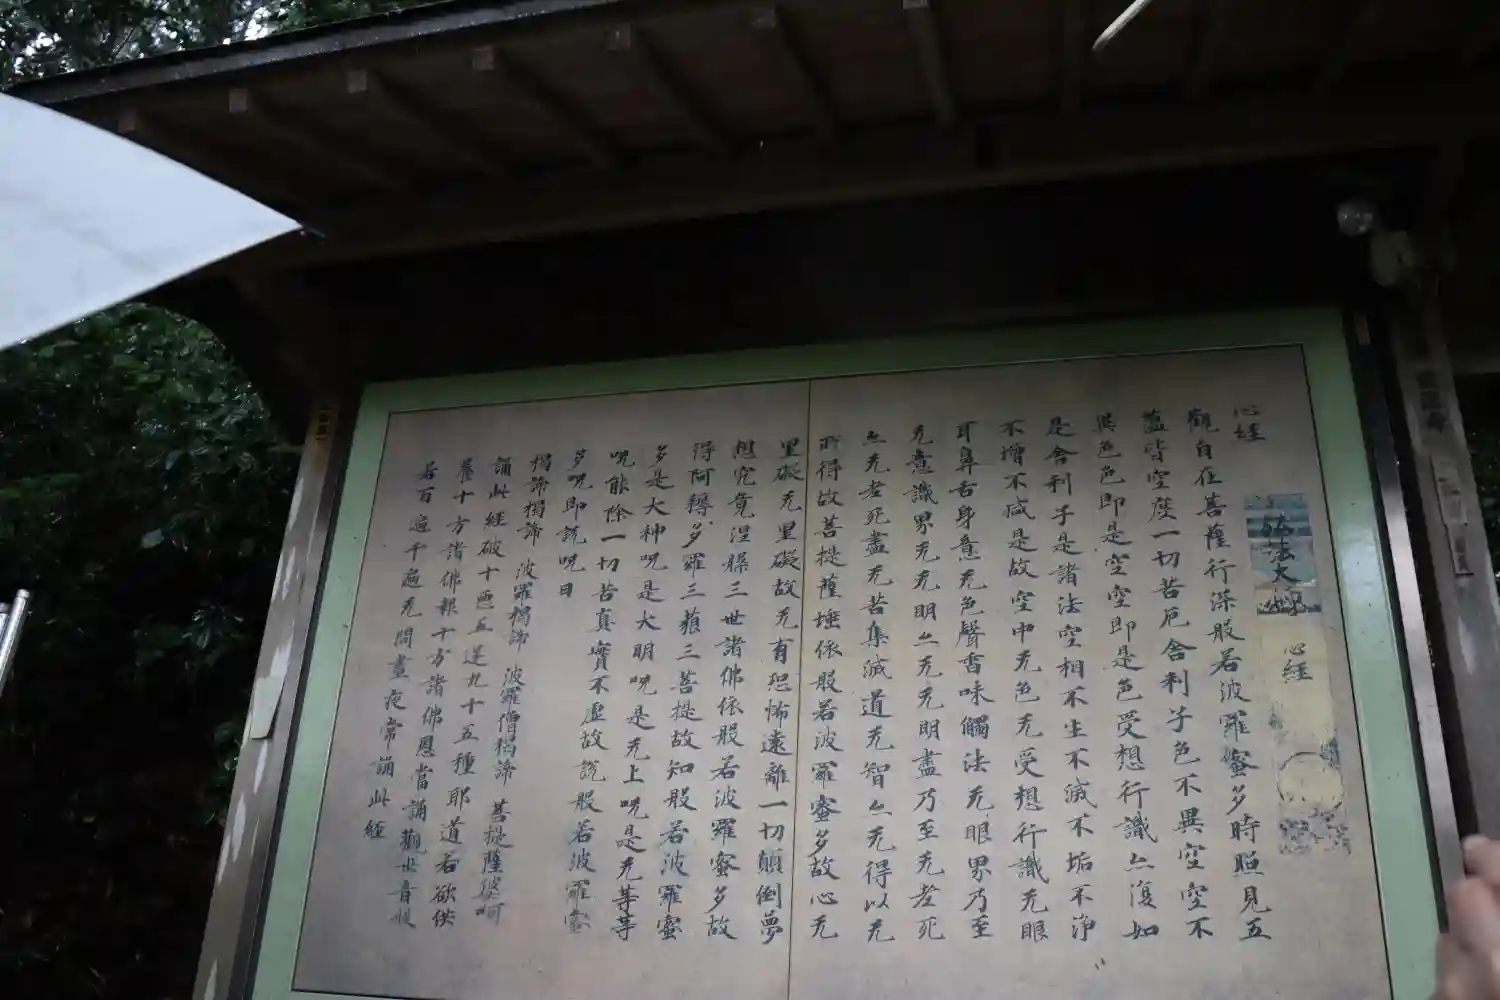 弘法大師
心経
心経
觀自在菩薩行深般若波羅蜜多時照見五
蘊皆空度一切苦厄舍利子色不異空空不
異色色即是空空即是色受想行識亦復如
是舍利子是諸法空相不生不滅不垢不淨
不增不減是故空中无色无受想行識无眼
耳鼻舌身意无色聲香味觸法无眼界乃至
无意識界无无明亦无无明盡乃至无老死
亦无老死盡无苦集滅道无智亦无得以无
所得故菩提薩埵依般若波羅蜜多故心无
罣礙无罣礙故无有恐怖遠離一切顛倒夢
想究竟涅槃三世諸佛依般若波羅蜜多故
得阿耨多羅三藐三菩提故知般若波羅蜜
多是大神呪是大明呪是无上呪是无等等
呪能除一切苦真實不虛故說般若波羅蜜
多呪即說呪曰
揭諦揭諦 波羅揭諦 波羅僧揭諦 菩提薩婆呵
誦此經破十惡五逆九十五種耶道若欲供
養十方諸佛報十方諸佛恩當誦觀世音般
若百遍千遍无間晝夜常誦此經